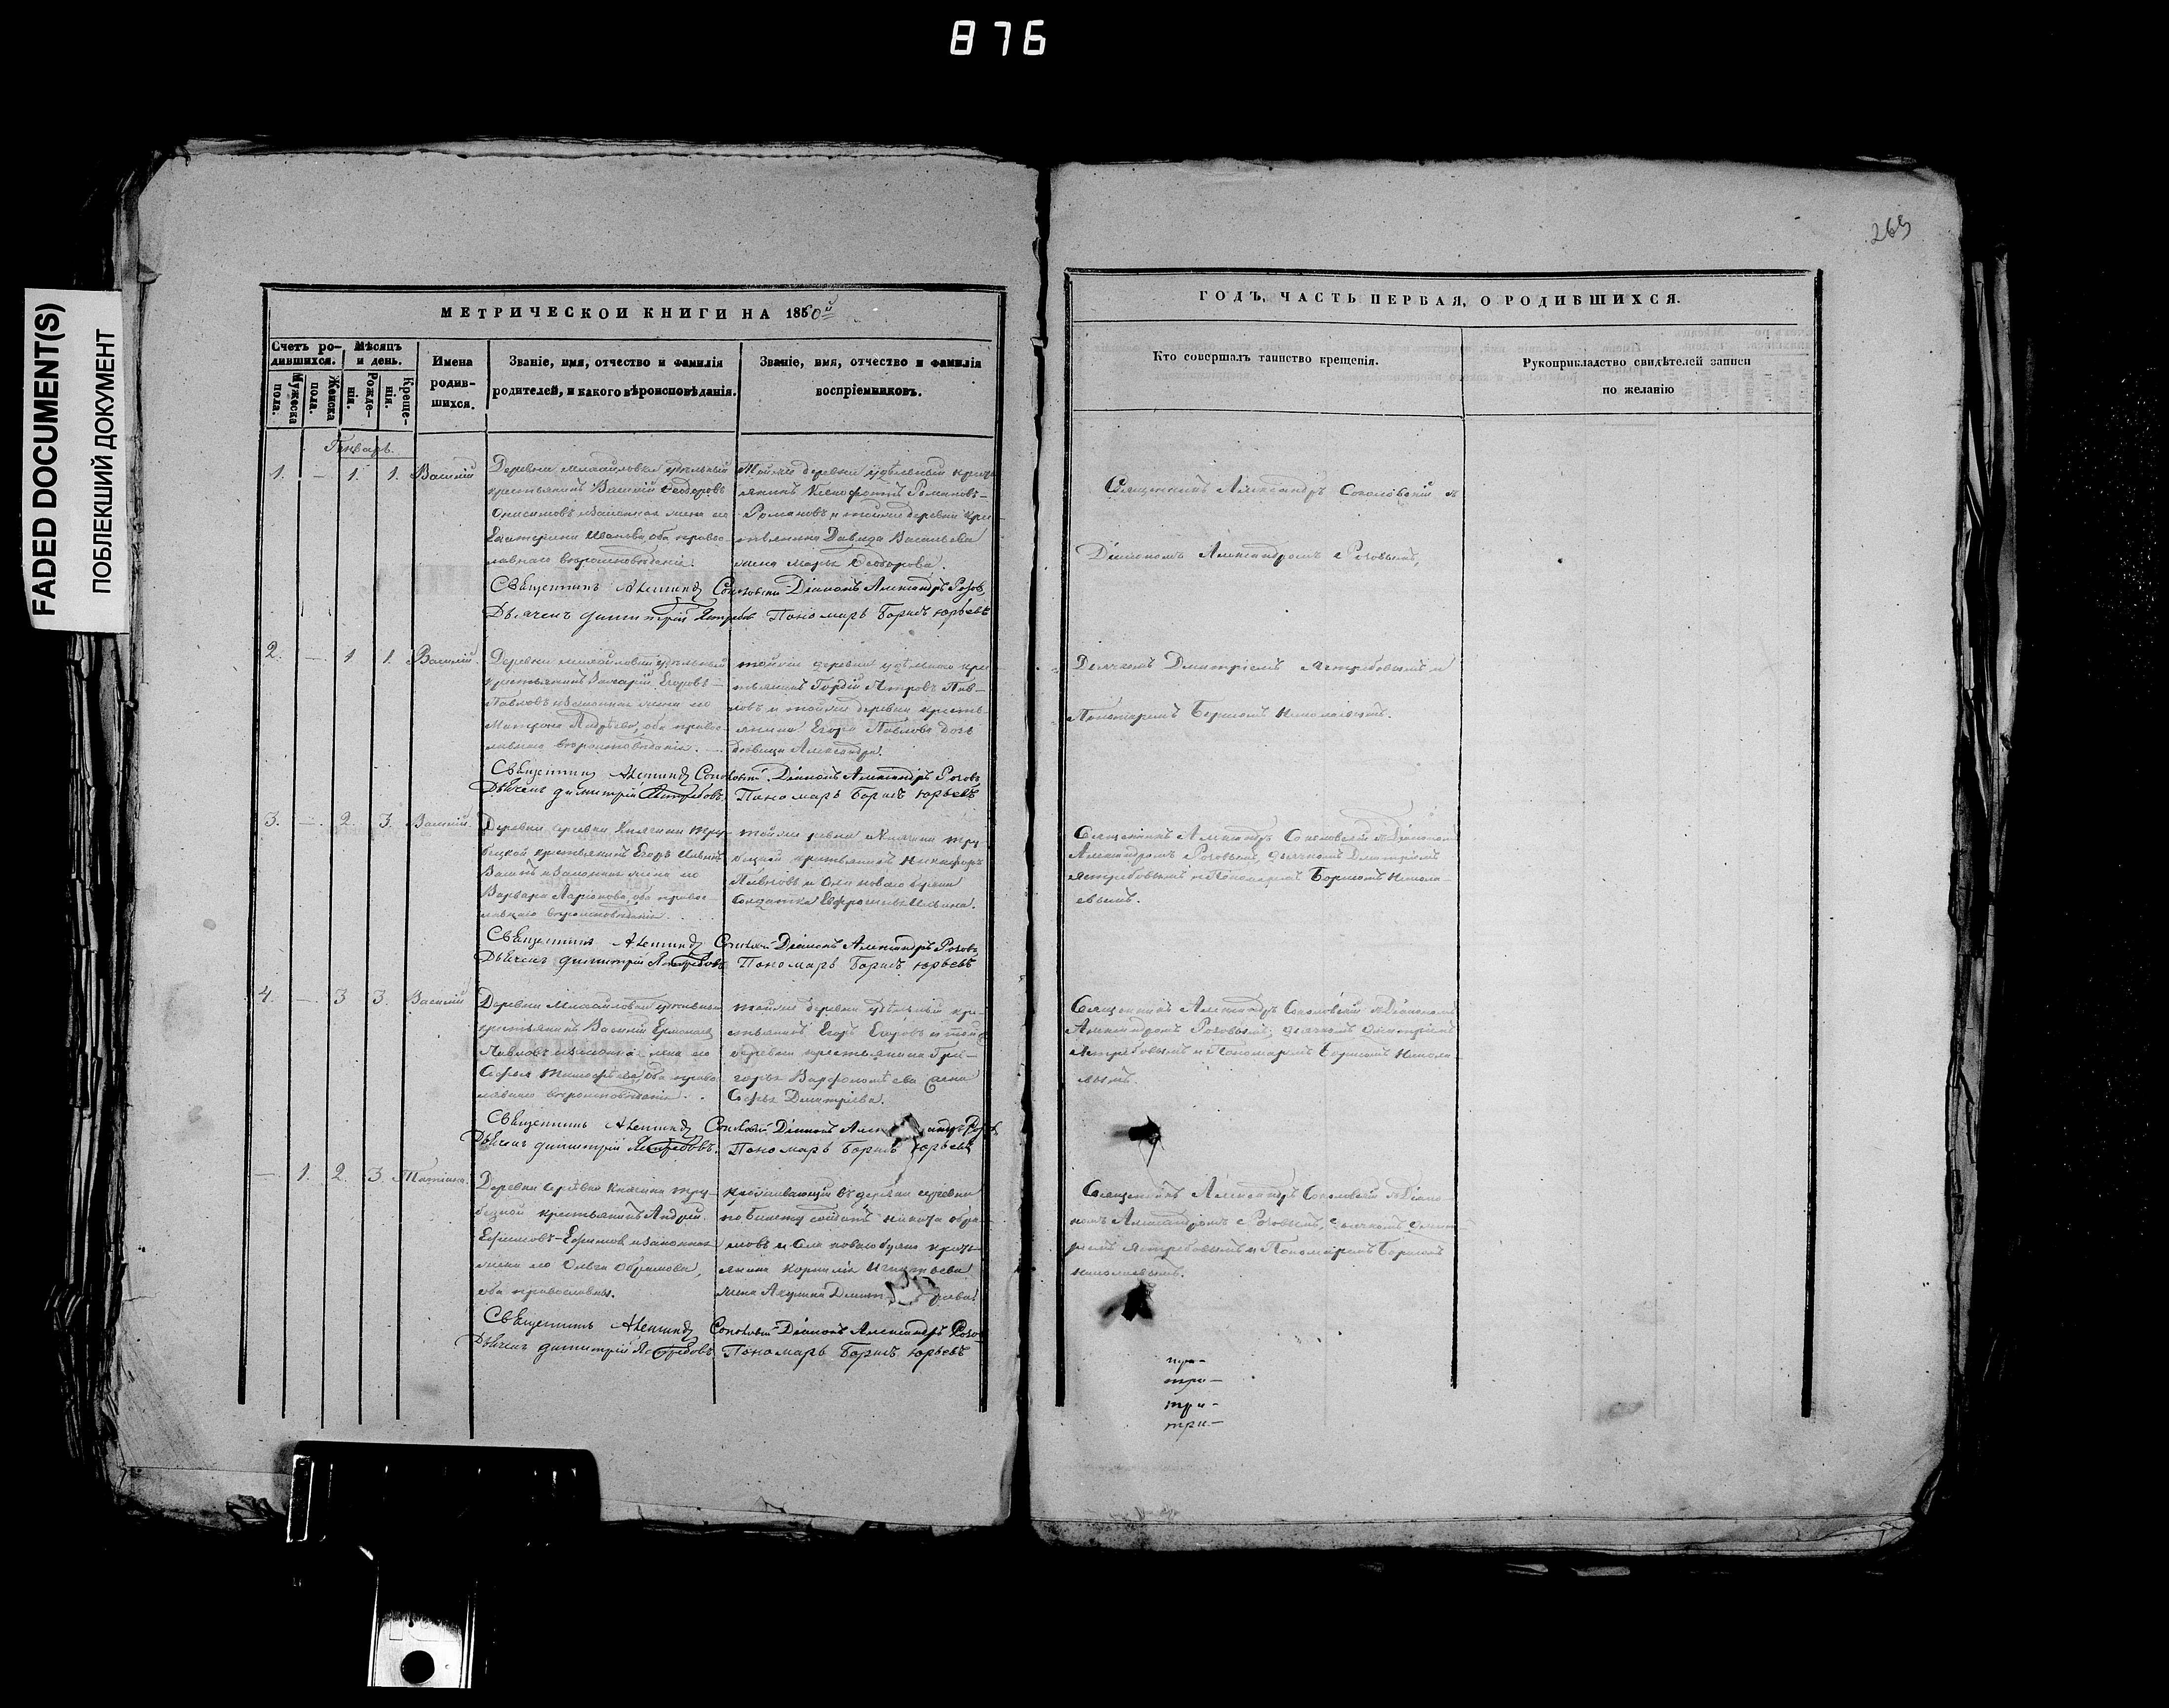 876
FADED DOCUMENT(S)
ПОБЛЕКШИЙ ДОКУМЕНТ
МЕТРИЧЕСКОЙ КНИГИ НА 1860й
Счетъ родившихся.
Мужеска пола.
Женска пола.
Мѣсяцъ и день.
Рожденія.
Крещенія.
Имена родившихся.
Званіе, имя, отчество и фамилія
родителей, и какого вѣроисповѣданія.
Званіе, имя, отчество и фамилія
воспріемниковъ.
Генварь.
1. — 1. 1. Василій
Деревни Михайловки удѣльный
крестьянинъ Василій Ѳеодоровъ
Онисимовъ и законная жена его
Екатерина Иванова, оба правос-
лавнаго вѣроисповѣданія.
Той же деревни удѣльный кресть
янинъ Ксенофонтъ Романовъ-
Романовъ и той же деревни кре
стьянина Давида Васильева
жена Марья Ѳеодорова.
Священникъ Александръ Соколовскій Діаконъ Александръ Розовъ
Дьячекъ Димитрій Ястребовъ Пономарь Борисъ Юрьевъ
2. — 1 1. Василій.
Деревни Михайловки удѣльный
крестьянинъ Захарій Егоровъ
Павловъ и законная жена его
Матрона Андреева, оба правос-
лавнаго вѣроисповѣданія.
той же деревни удѣльнаго кре
стьянинъ Гордій Петровъ Пав-
ловъ и той же деревни кресть-
янина Егора Павлова дочь
дѣвица Александра.
Священникъ Александръ Соколовскій Діаконъ Александръ Розовъ
Дьячекъ Димитрій Ястребовъ. Пономарь Борисъ Юрьевъ
3. — 2. 3. Василій.
Деревни Княгини Тру-
бецкой крестьянинъ Егоръ Ильинъ
и законная жена его
Варвара Ларіонова, оба правос-
лавнаго вѣроисповѣданія.
той же Княгини Тру-
бецкой крестьянинъ Никифоръ
Павловъ и
Солдатка Евфросинья Ильина.
Священникъ Александръ Соколовскій Діаконъ Александръ Розовъ
Дьячекъ Димитрій Ястребовъ Пономарь Борисъ Юрьевъ
4. — 3 3. Василій
Деревни Михайловки удѣльный
крестьянинъ Василій Ермолаевъ
Павловъ и законная жена его
Софья Тимофѣева, оба право
лавнаго вѣроисповѣданія.
той же деревни удѣльный кре-
стьянинъ Егоръ Егоровъ и той же
деревни крестьянина Гри-
горья Варфоломѣева жена
Софья Дмитріева.
Священникъ Александръ Соколовскій Діаконъ Александръ Розовъ
Дьячекъ Димитрій Ястребовъ. Пономарь Борисъ Юрьевъ
— 1. 2. 3. Татіана.
Деревни Княгини Тру-
бецкой крестьянинъ Андрей
Ефимовъ-Ефимов и законная
жена его Ольга Абрамова,
оба православны.
проживающій въ деревни
по билету солдатъ Абра
мовъ и кресть-
янина Корнилія Игнатьева
жена Акулина Дмитріева.
Священникъ Александръ Соколовскій Діаконъ Александръ Розовъ
Дьячекъ Димитрій Ястребовъ Пономарь Борисъ Юрьевъ
269
ГОДЪ, ЧАСТЬ ПЕРВАЯ, О РОДИВШИХСЯ.
Кто совершалъ таинство крещенія.
Рукоприкладство свидѣтелей записи
по желанію
Священникъ Александръ Соколовскій съ
Діакономъ Александромъ Розовымъ,
Дьячкомъ Дмитріемъ Ястребовымъ и
Пономаремъ Борисомъ Николаевымъ.
Священникъ Александръ Соколовскій съ Діакономъ
Александромъ Розовымъ, дьячкомъ Дмитріемъ
Ястребовымъ и Пономаремъ Борисомъ Никола-
евымъ.
Священникъ Александръ Соколовскій съ Діакономъ
Александромъ Розовымъ, дьячкомъ Дмитріемъ
Ястребовымъ и Пономаремъ Борисомъ Никола
евымъ.
Священникъ Александръ Соколовскій съ Діако-
номъ Александромъ Розовымъ, дьячкомъ Дмит-
ріемъ Ястребовымъ и Пономаремъ Борисомъ
Николаевымъ.
три-
три-
три-
три-